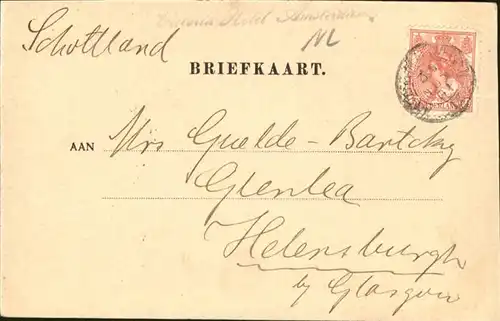 Hotel Amsterdam
Schottland
NL
BRIEFKAART.
AAN Mrs Guelde-Bartcky
Glenlea
Helensburgh
by Glasgow